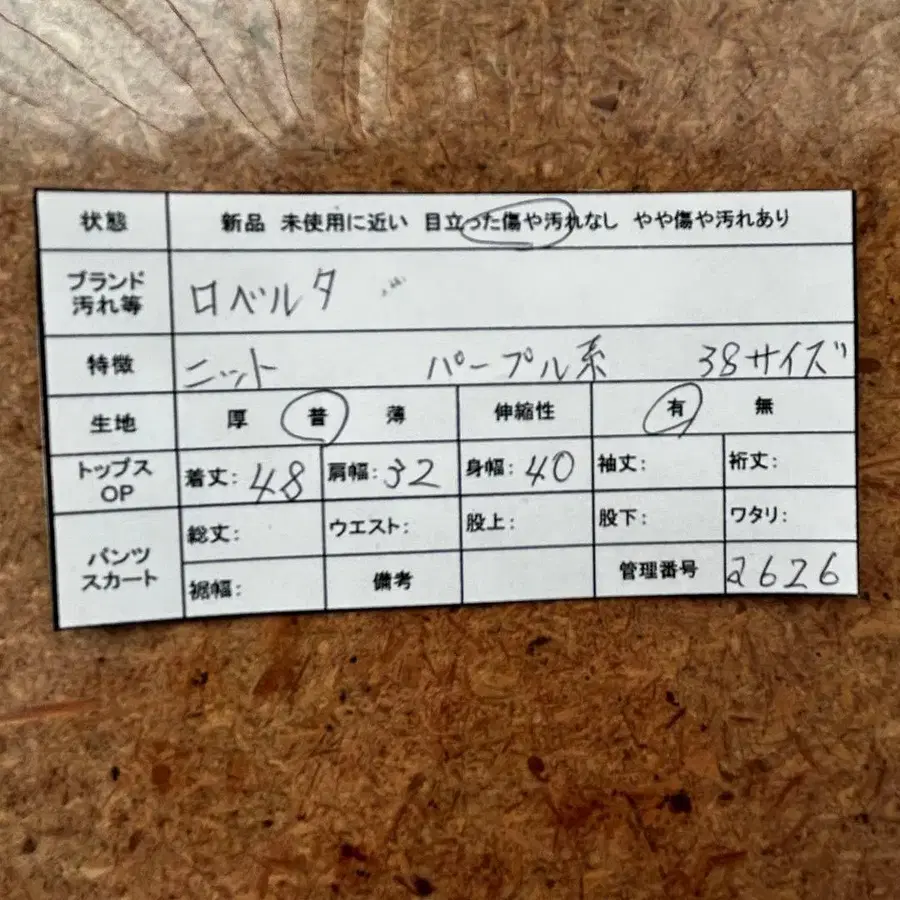 状態 新品 未使用に近い 目立った傷や汚れなし やや傷や汚れあり
ブランド
汚れ等 ロベルタ
特徴 ニット パープル系 38サイズ
生地 厚 普 薄 伸縮性 有 無
トップス
OP 着丈: 48 肩幅: 32 身幅: 40 袖丈: 裄丈:
パンツ
スカート 総丈: ウエスト: 股上: 股下: ワタリ:
裾幅: 備考 管理番号 2626